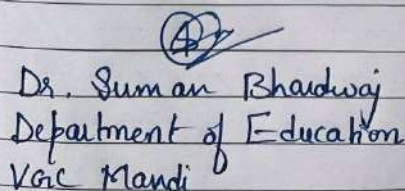 Dr. Suman Bhardwaj
Department of Education
VGC Mandi